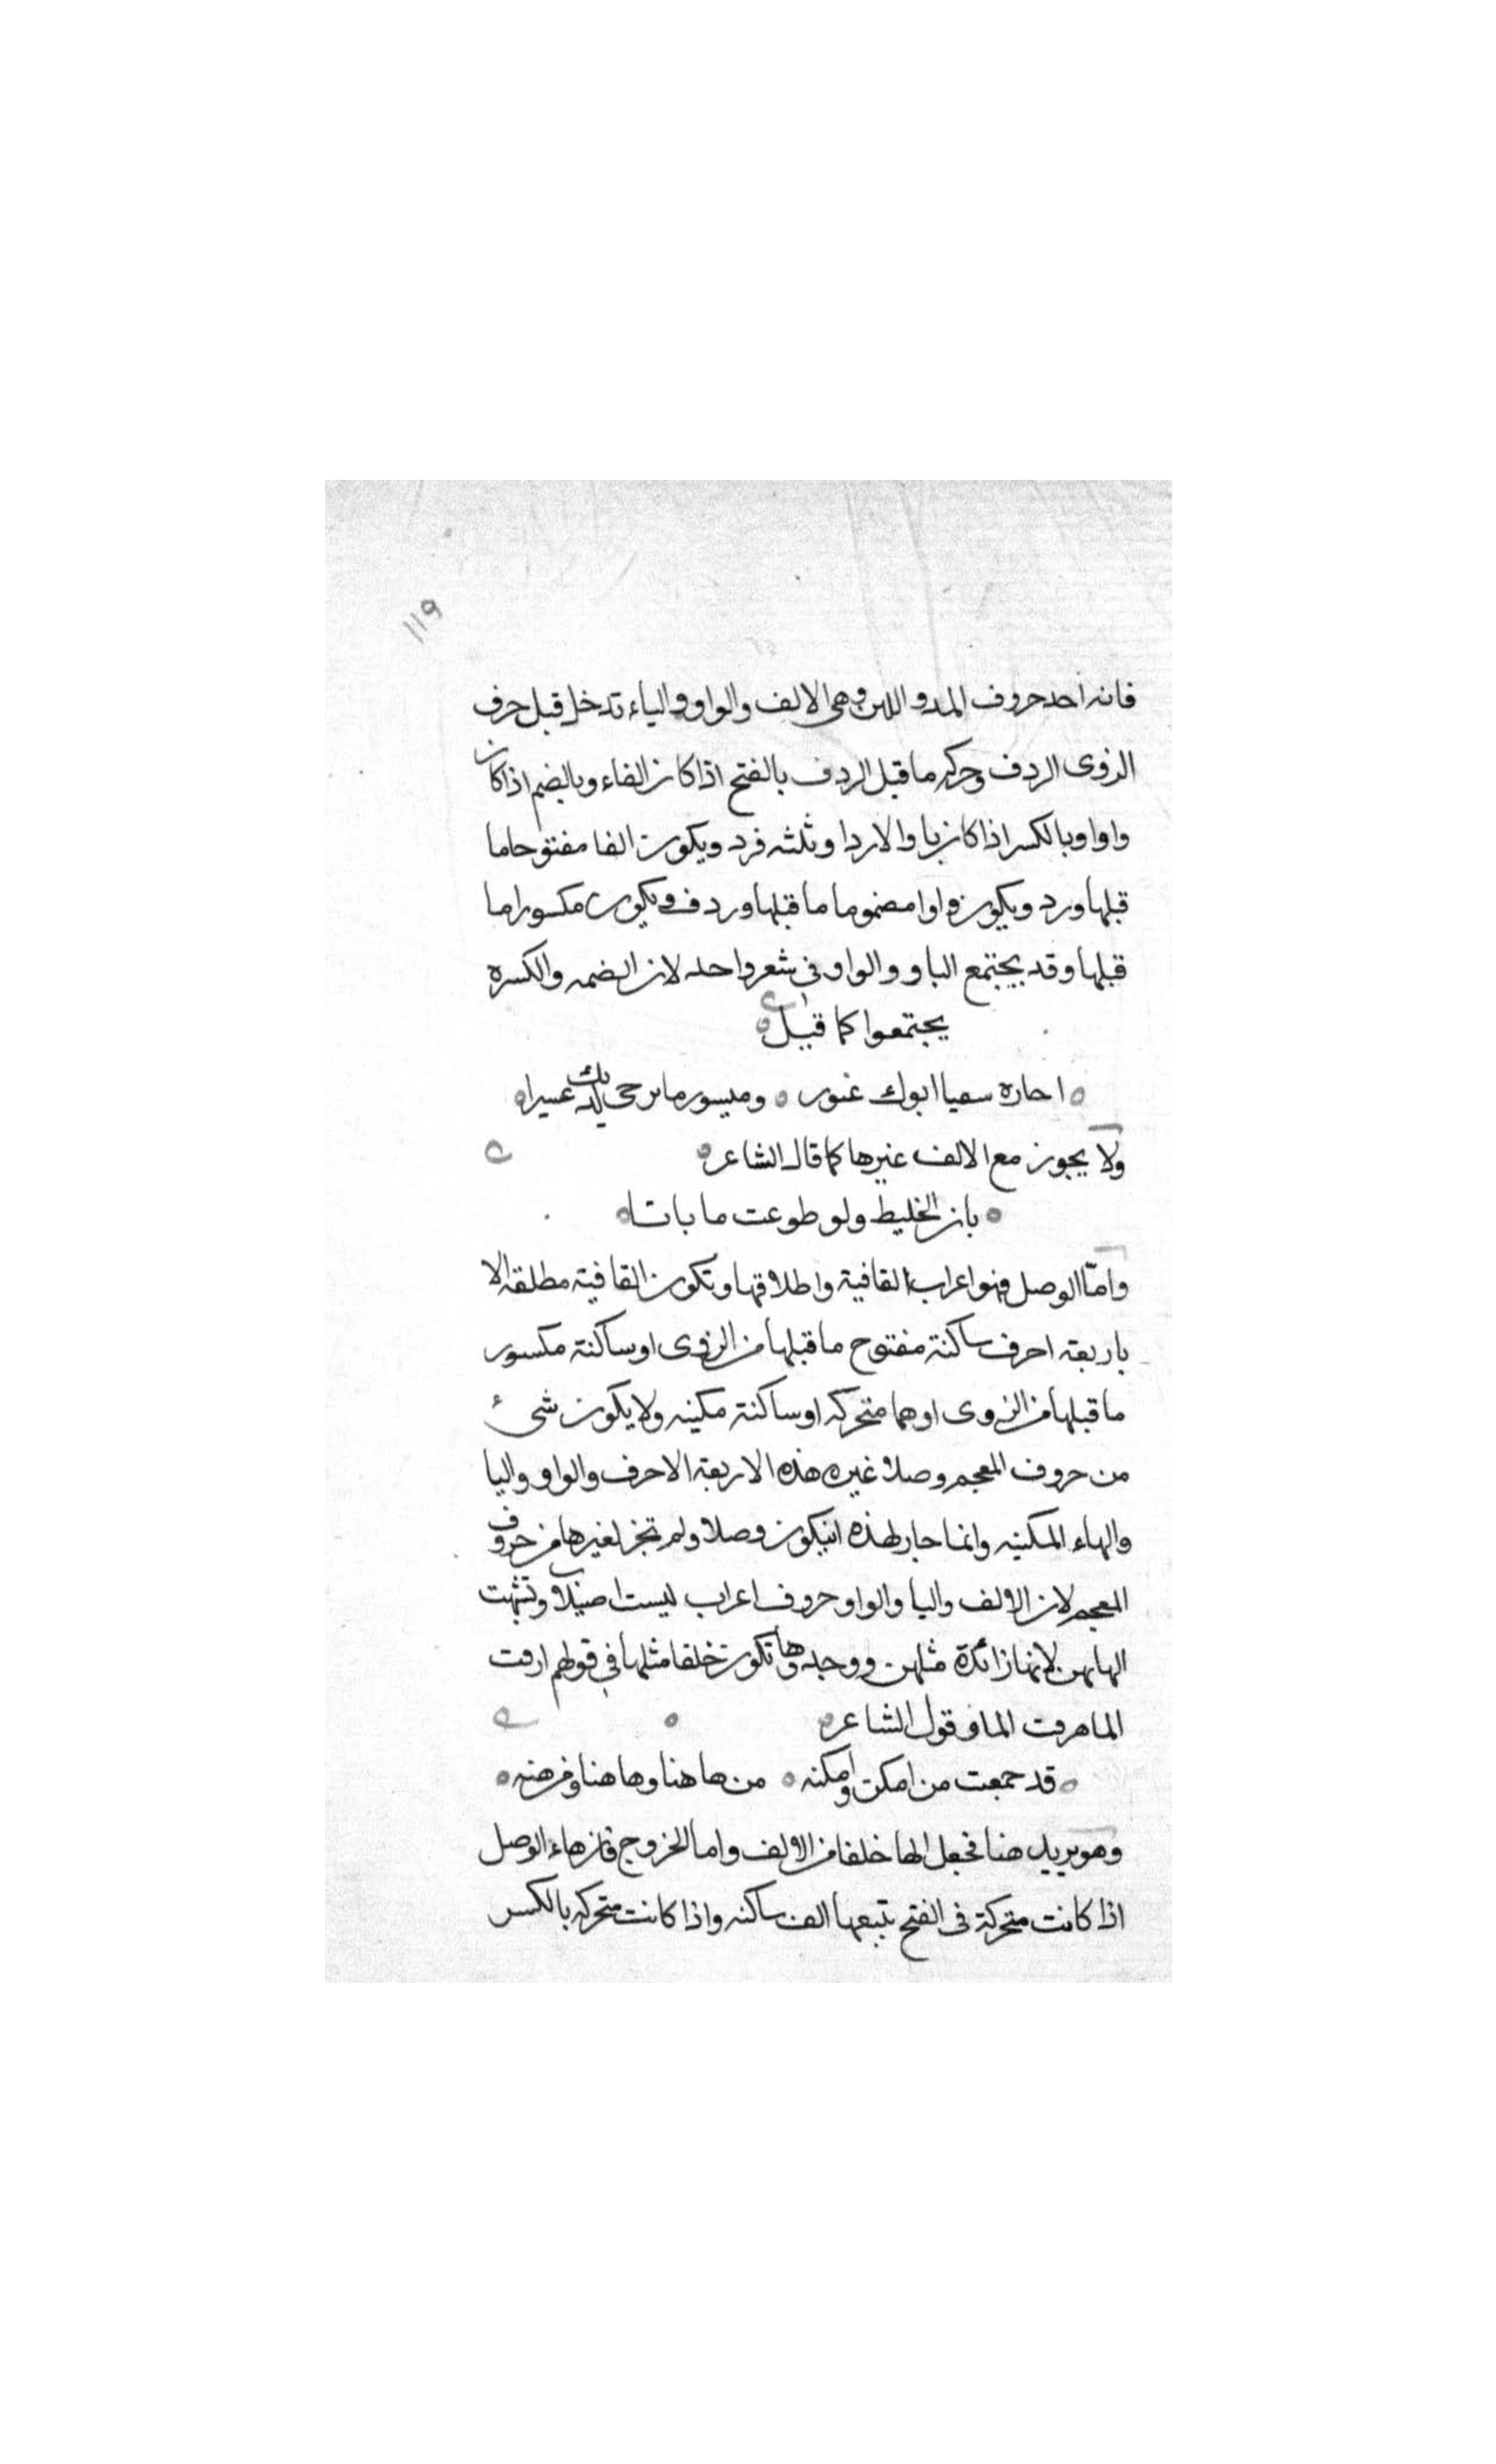 ١١٩
فانه احد حروف المد و اللين وهى الالف والواو والياء تدخل قبل حرف
الروى الردف وحركه ما قبل الردف بالفتح اذا كان الفاء وبالضم اذا كان
واوا وبالكسر اذا كان يا والا ردا وثلثه فرد ويكون الفا مفتوحا ما
قبلها ورد ويكون واوا مضموما ما قبلها وردف ويكون مكسورا ما
قبلها وقد يجتمع اليا و والواو فى شعر واحد لان الضمه والكسره
يجتمعوا كما قيل
احاره سميا ابوك غنور وميسور ما يرجى لديك عسيرا
ولا يجوز مع الالف غيرها كما قال الشاعر
بان الخليط ولو طوعت ما باتا
وامّا الوصل فهو اعراب القافية واطلاقها وتكون القافية مطلقه الا
باربعة احرف ساكنة مفتوح ما قبلها من الروى او ساكنة مكسور
ما قبلها من الروى او هما متحركه او ساكنة مكينه ولا يكون شىء
من حروف المعجم وصلا غير هذه الاربعة الاحرف والواو واليا
والهاء المكنيه وانما جاز لهذه ان يكون وصلا ولم تجز لغيرها من حروف
المعجم لان الالف واليا والواو حروف اعراب ليست وتشبهت
الها بهن لانها زائدة مثلهن ووجدوها تكون خلفا مثلها فى قولهم ارقت
الما هرقت الما وقول الشاعر
قد جمعت من امكن وامكنه من هاهنا وهاهنا ومن هنه
وهو يريد هنا فجعل الها خلفا من الالف واما الخروج فان هاء الوصل
اذا كانت متحركة فى الفتح تتبعها الف ساكنه واذا كانت متحركه بالكسر